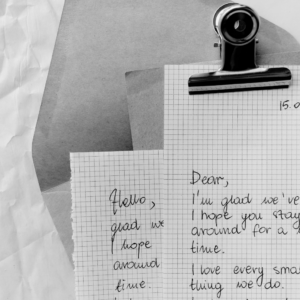 15.
Dear,
I'm glad we've
I hope you stay
around for a
time.
I love every
thing we do.
Hello,
glad we
I hope
around
time.